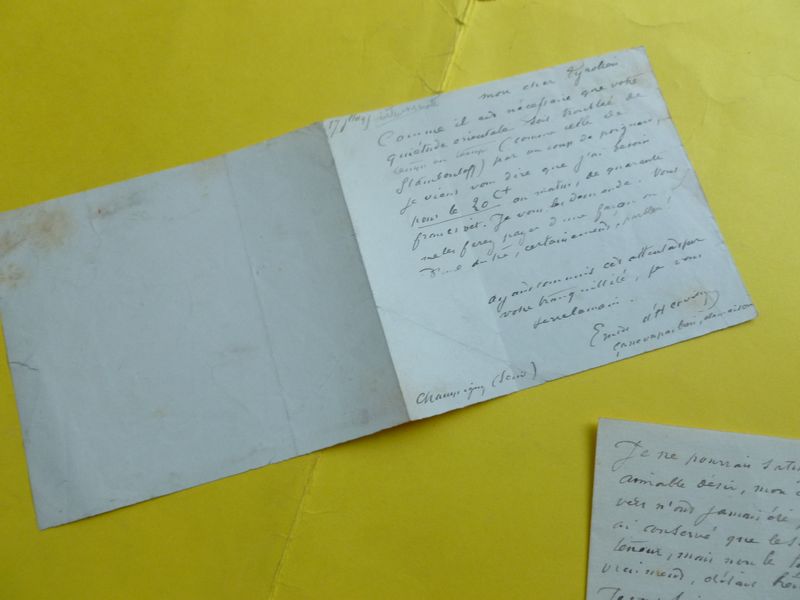 mon cher Tyrolien
Comme il est nécessaire que votre
quiétude orientale soit troublée de
temps en temps (comme celle de
Stambouloff) par un coup de poignard,
je viens vous dire que j'ai besoin
pour le 20 Ct au matin, de quarante
francs net. Je vous les demande. Vous
me les ferez payer d'une façon ou
d'une autre, certainement, parbleu!
Ayant commis cet attentat sur
votre tranquillité, je vous
serre la main.
Emile d'Hervilly
Champigny (Seine)
Je ne pourrai satis
aimable désir, mon c
vers n'ont jamais été
ai conservé que les
teneur, mais non le
vraiment, détais